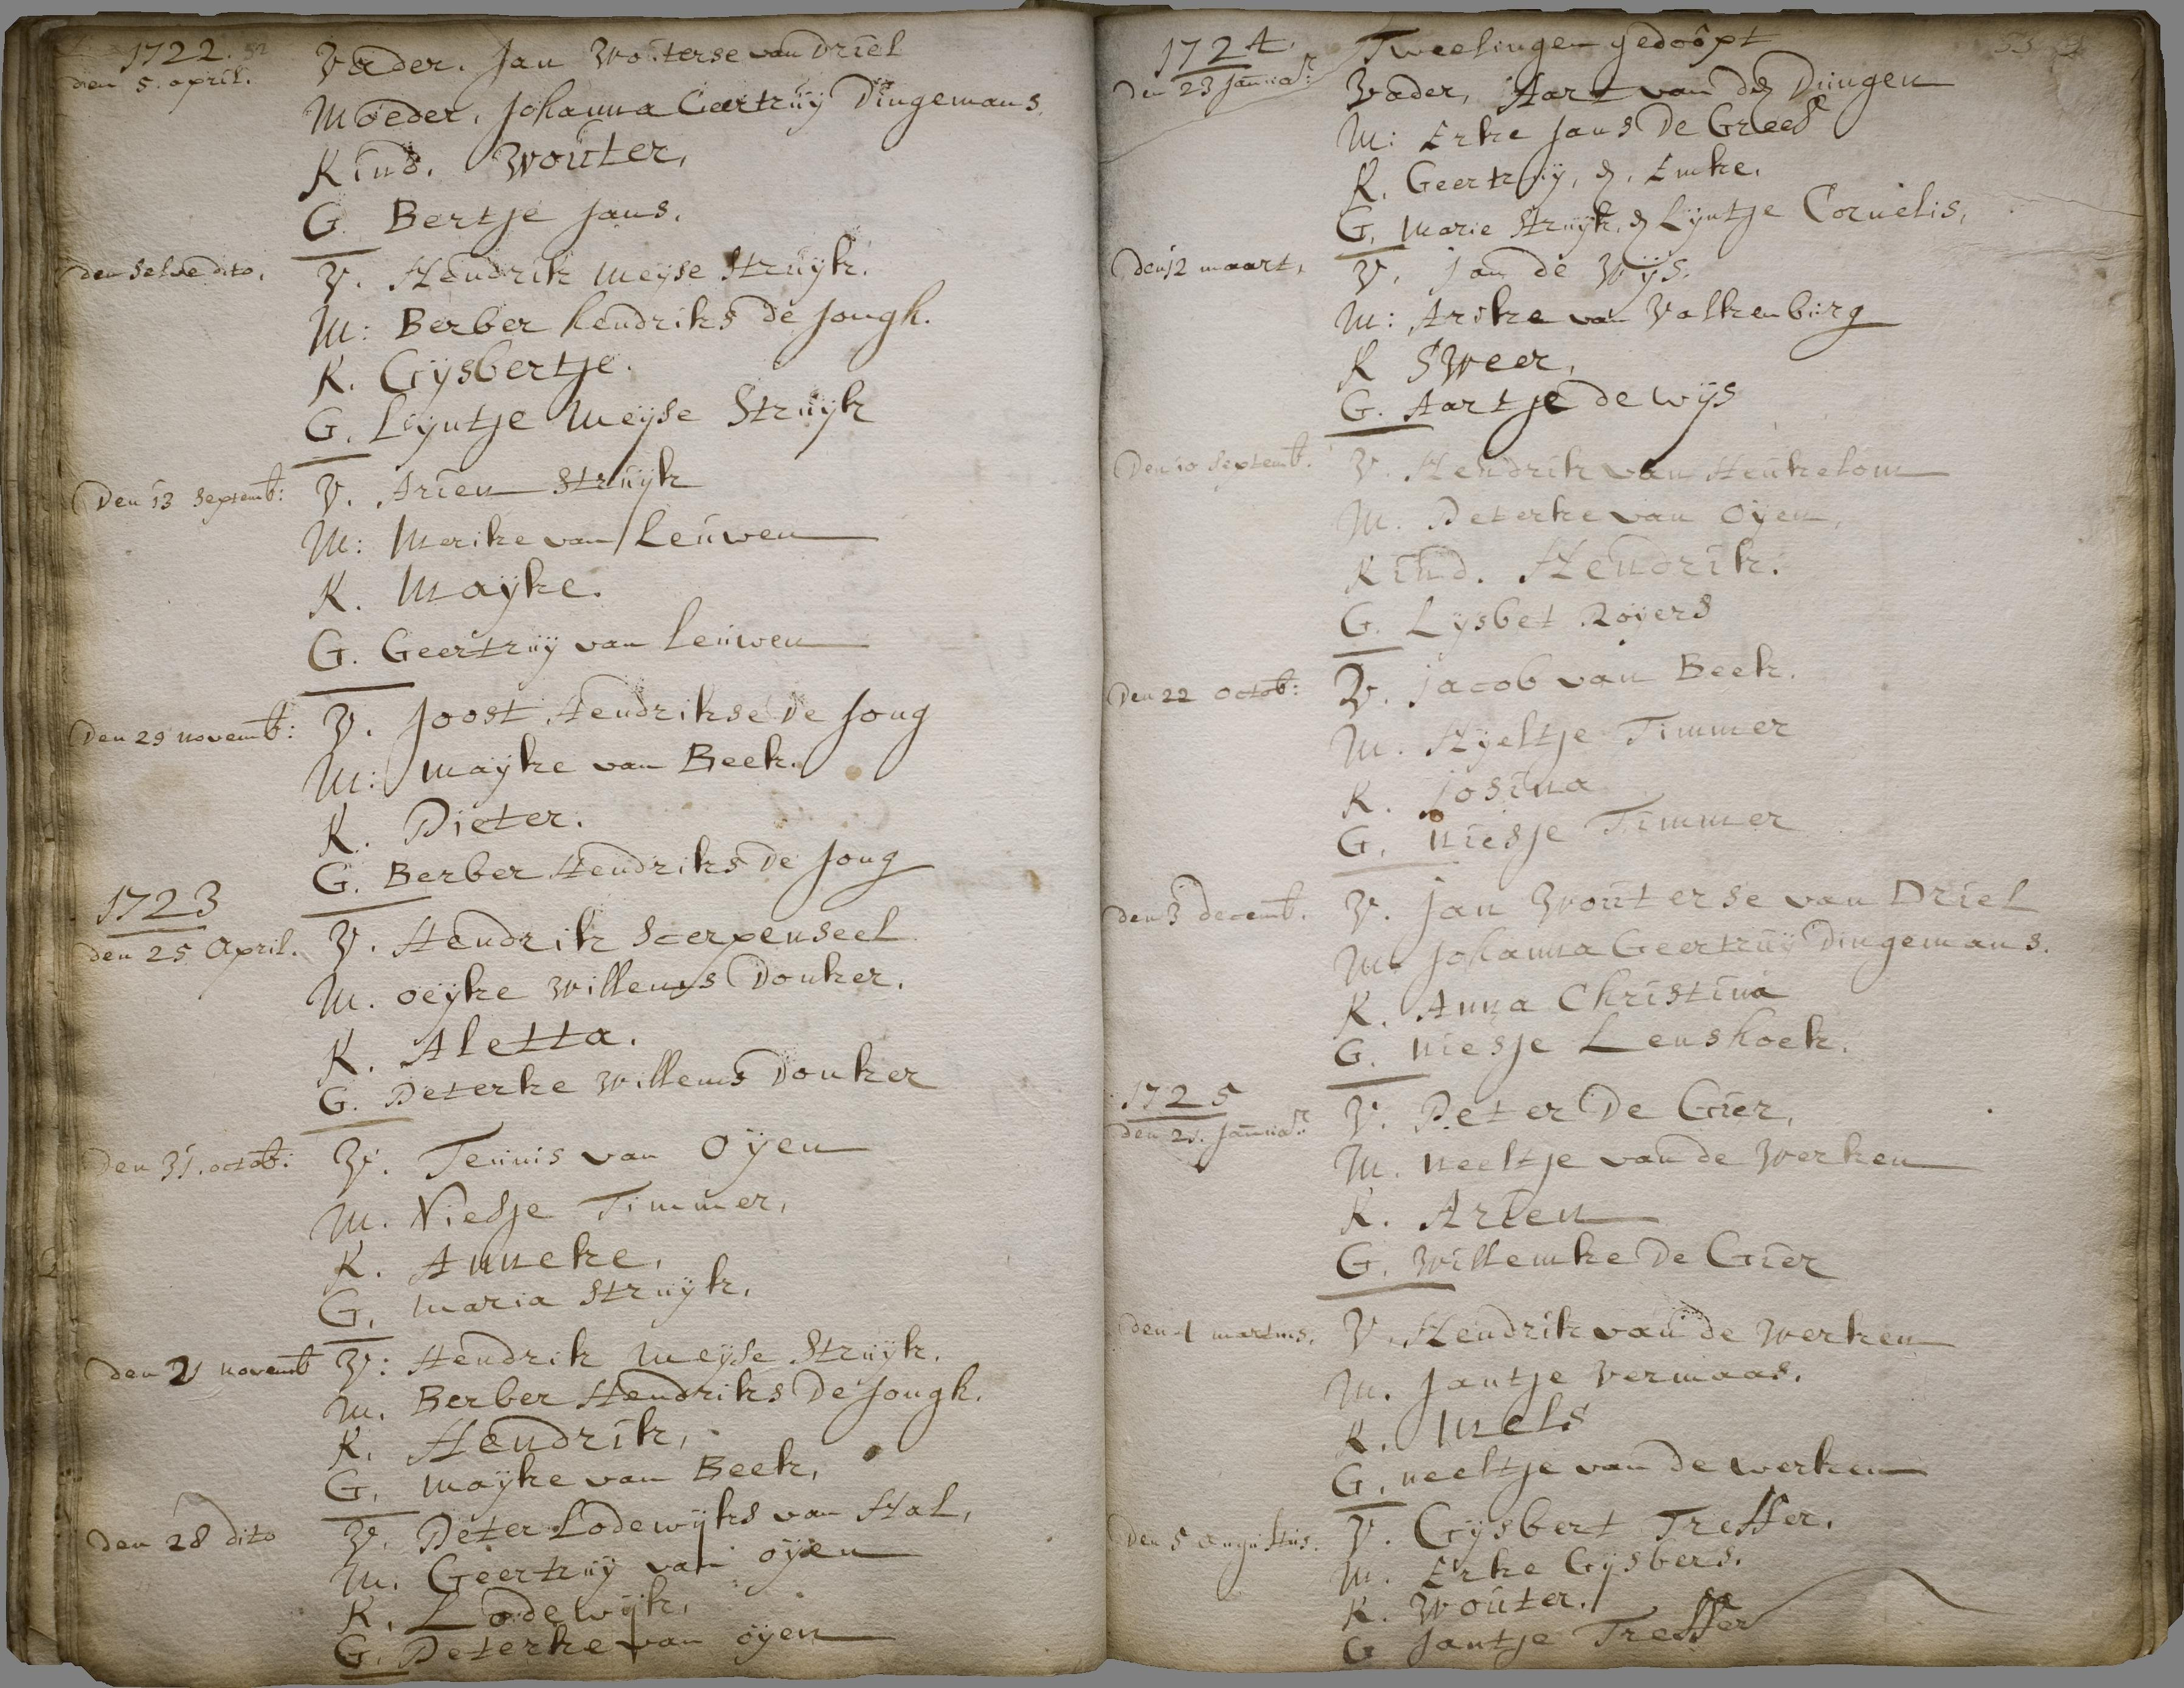 1722. 52
den 5. april. Vader. Jan Wouterse van Driel
Moeder. Johanna Geertruÿ Dingemans.
Kind. Wouter.
G. Bertje Jans.
den selve dito. V. Hendrik Meyse Struÿk.
M: Berber hendriks de Jongh.
K. Gijsbertje.
G. Lijntje Meÿse Struÿk
Den 13 Septemb: V. Arien Struÿk
M: Merike van Leuwen
K. Mayke.
G. Geertruÿ van Leuwen
Den 29 novemb: V. Joost Hendrikse De Jong
M: Maÿke van Beek.
K. Pieter.
G. Berber Hendriks De Jong
1723
den 25 April. V. Hendrik Scerpenseel
M. oeÿke Willems Donker.
K. Aletta.
G. Peterke Willems Donker
Den 31. octob: V. Teunis van Oÿen
M. Niesje Timmer,
K. Anneke,
G. Maria Struÿk.
den 21 novemb V: Hendrik Meyse Struÿk.
M. Berber Hendriks De Jongh.
K. Hendrik,
G. Maÿke van Beek,
Den 28 dito V. Peter Lodewÿks van Hal,
M. Geertruÿ van oÿen
K. Lodewÿk,
G. Peterke van oÿen
1724. Tweelingen gedoopt 53
Den 23 Januar: Vader, Aart van den Dungen
M: Erke Jans De Greef
K. Geertruÿ, en Emke.
G. Marie Struÿk, en Lÿntje Cornelis,
Den 12 maart, V. Jan de Wÿs.
M: Arike van Valkenburg
K Sweer,
G. Aartje de wÿs
Den 10 Septemb. V. Hendrik van Heukelom
M. Peterke van Oÿen,
Kind. Hendrik.
G. Lysbet Royers
Den 22 octob: V. Jacob van Beek.
M. Hyeltje Timmer
K. Josina
G. Niesje Timmer
den 3 decemb. V. Jan Wouterse van Driel
M. Johanna Geertruÿ Dingemans.
K. Anna Christina
G. Niesje Lenshoek.
1725
den 21. Januar: V. Peter De Gier,
M. Neeltje van de Werken
K. Arien
G. Willemke De Gier
den 4 martius. V. Hendrik van de Werken
M. Jantje Vermaas.
K. Mels
G. neeltje van de werken
Den 5 augustus. V. Gÿsbert Treffer.
M. Erke Gÿsbers.
K. Wouter.
G Jantje Treffer